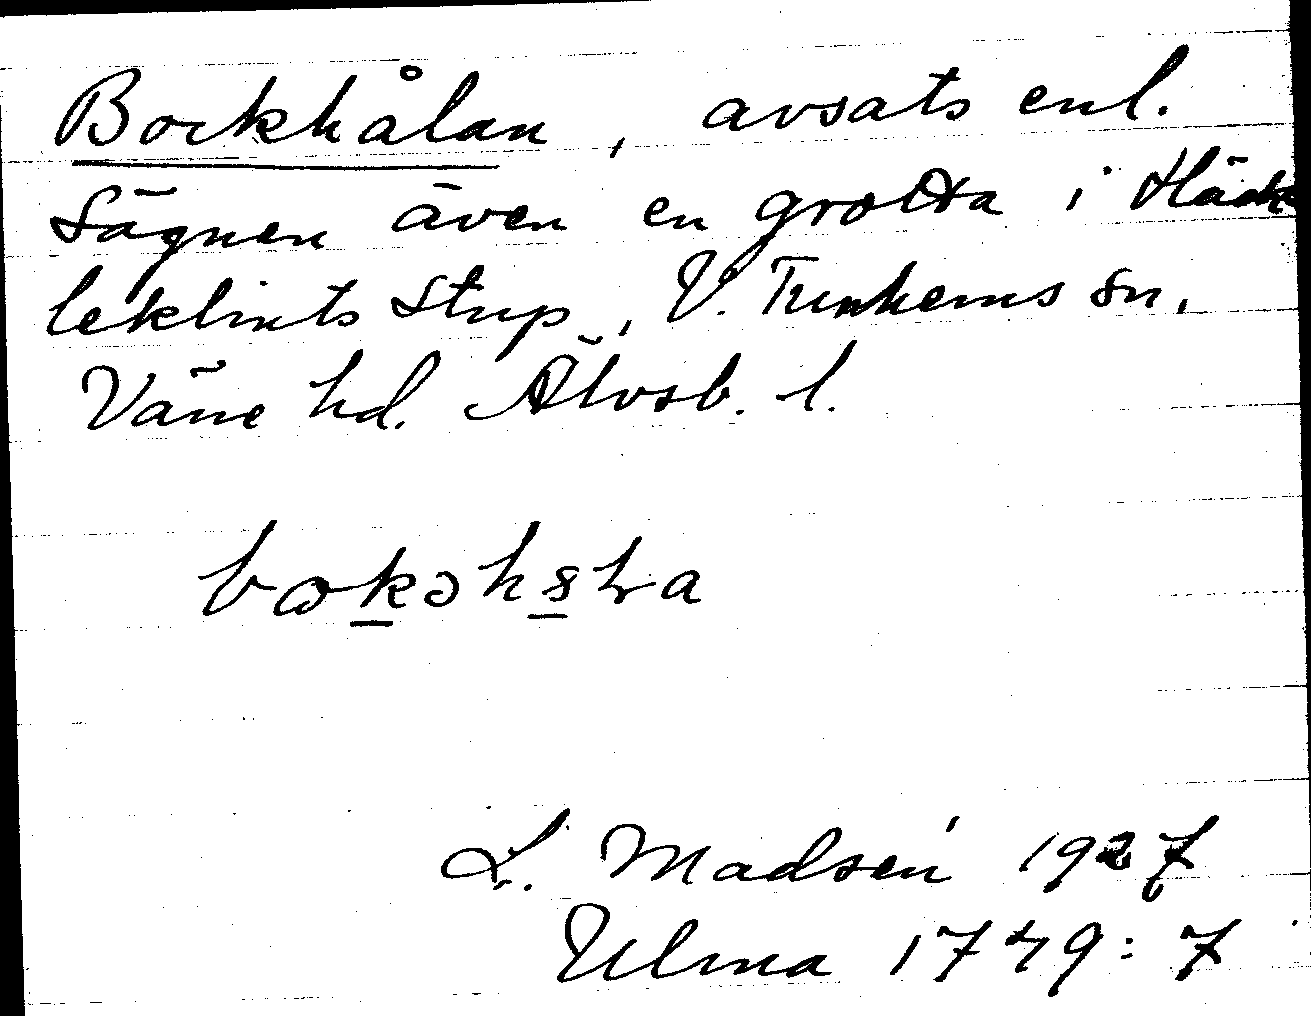 Bockhålan, avsats enl.
Sägnen även en grotta i Häck
leklints Stup, V. Tunhems sn,
Väne hd. Älvsb. l.
L. Madsén 1927
Ulma 1749:7